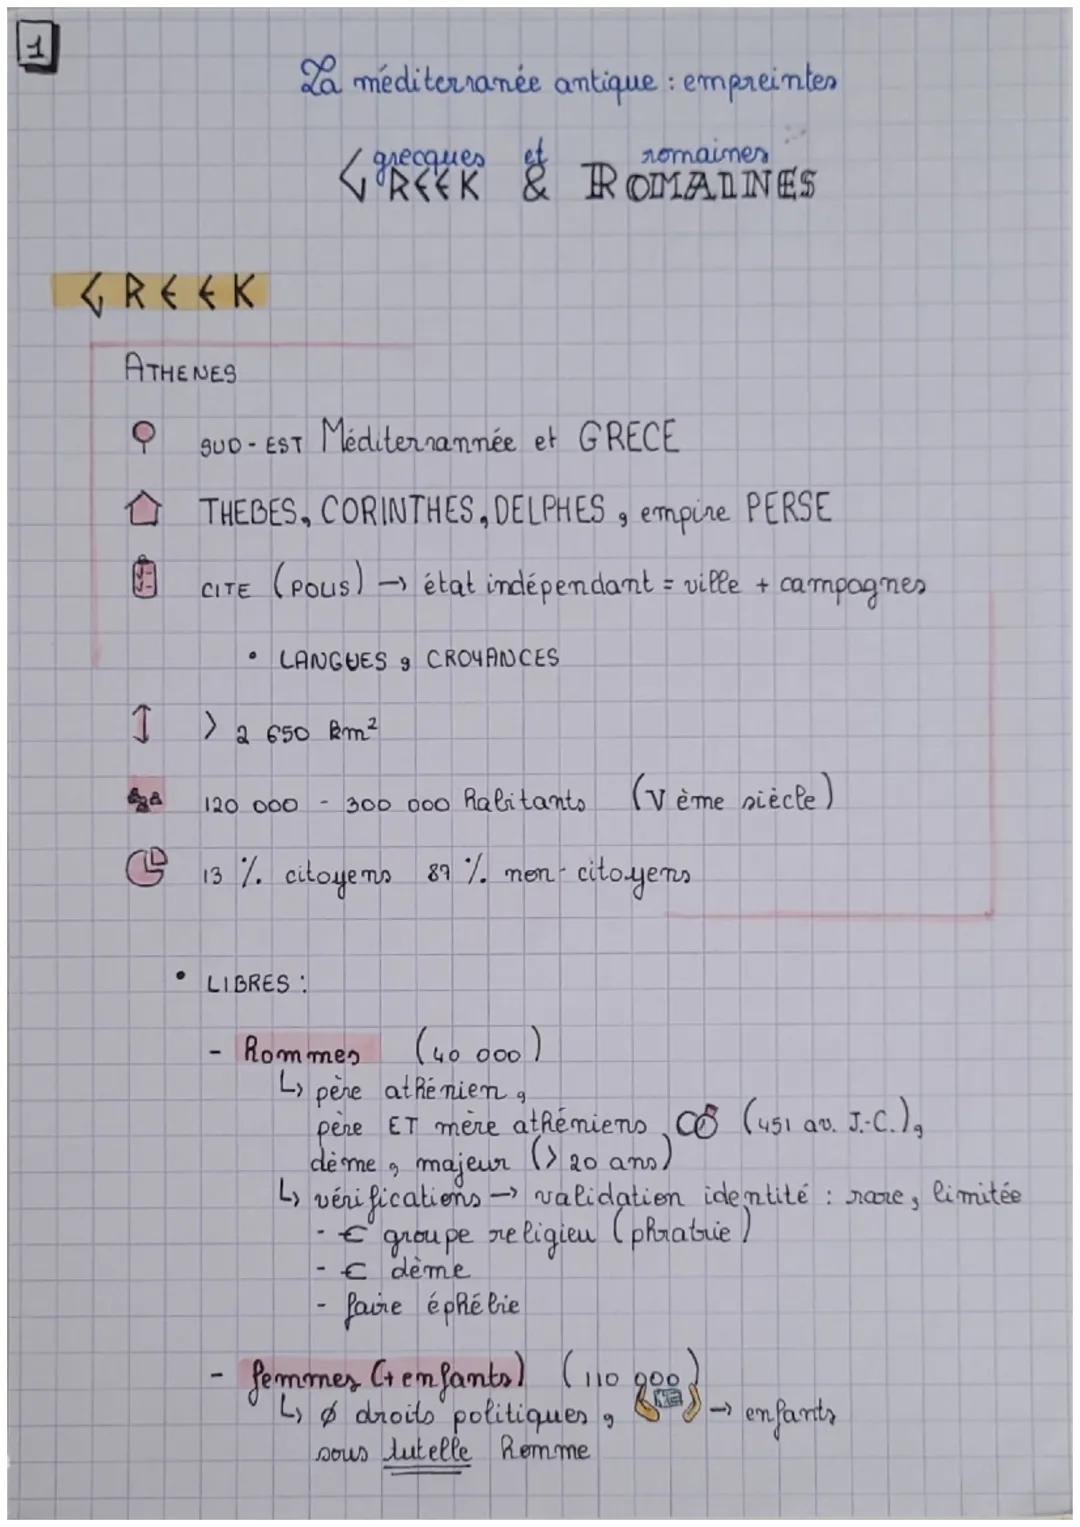 1
La méditerranée antique : empreintes
grecques et romaines
GREEK & ROMAINES
GREEK
ATHENES
SUD-EST Méditerrannée et GRECE
THEBES, CORINTHES, DELPHES, empire PERSE
CITE (POLIS) → état indépendant = ville + campagnes
• LANGUES, CROYANCES
> 2 650 km²
120 000 - 300 000 habitants (V ème siècle)
13 % citoyens 87 % non-citoyens
• LIBRES :
- hommes (40 000)
↳ père athénien,
père ET mère athéniens (451 av. J.-C.),
dème, majeur (> 20 ans)
↳ vérifications → validation identité : rare, limitée
- € groupe religieu (phratrie)
- € dème
- faire éphébie
- femmes (+ enfants) (110 000)
↳ ø droits politiques, → enfants
sous tutelle homme